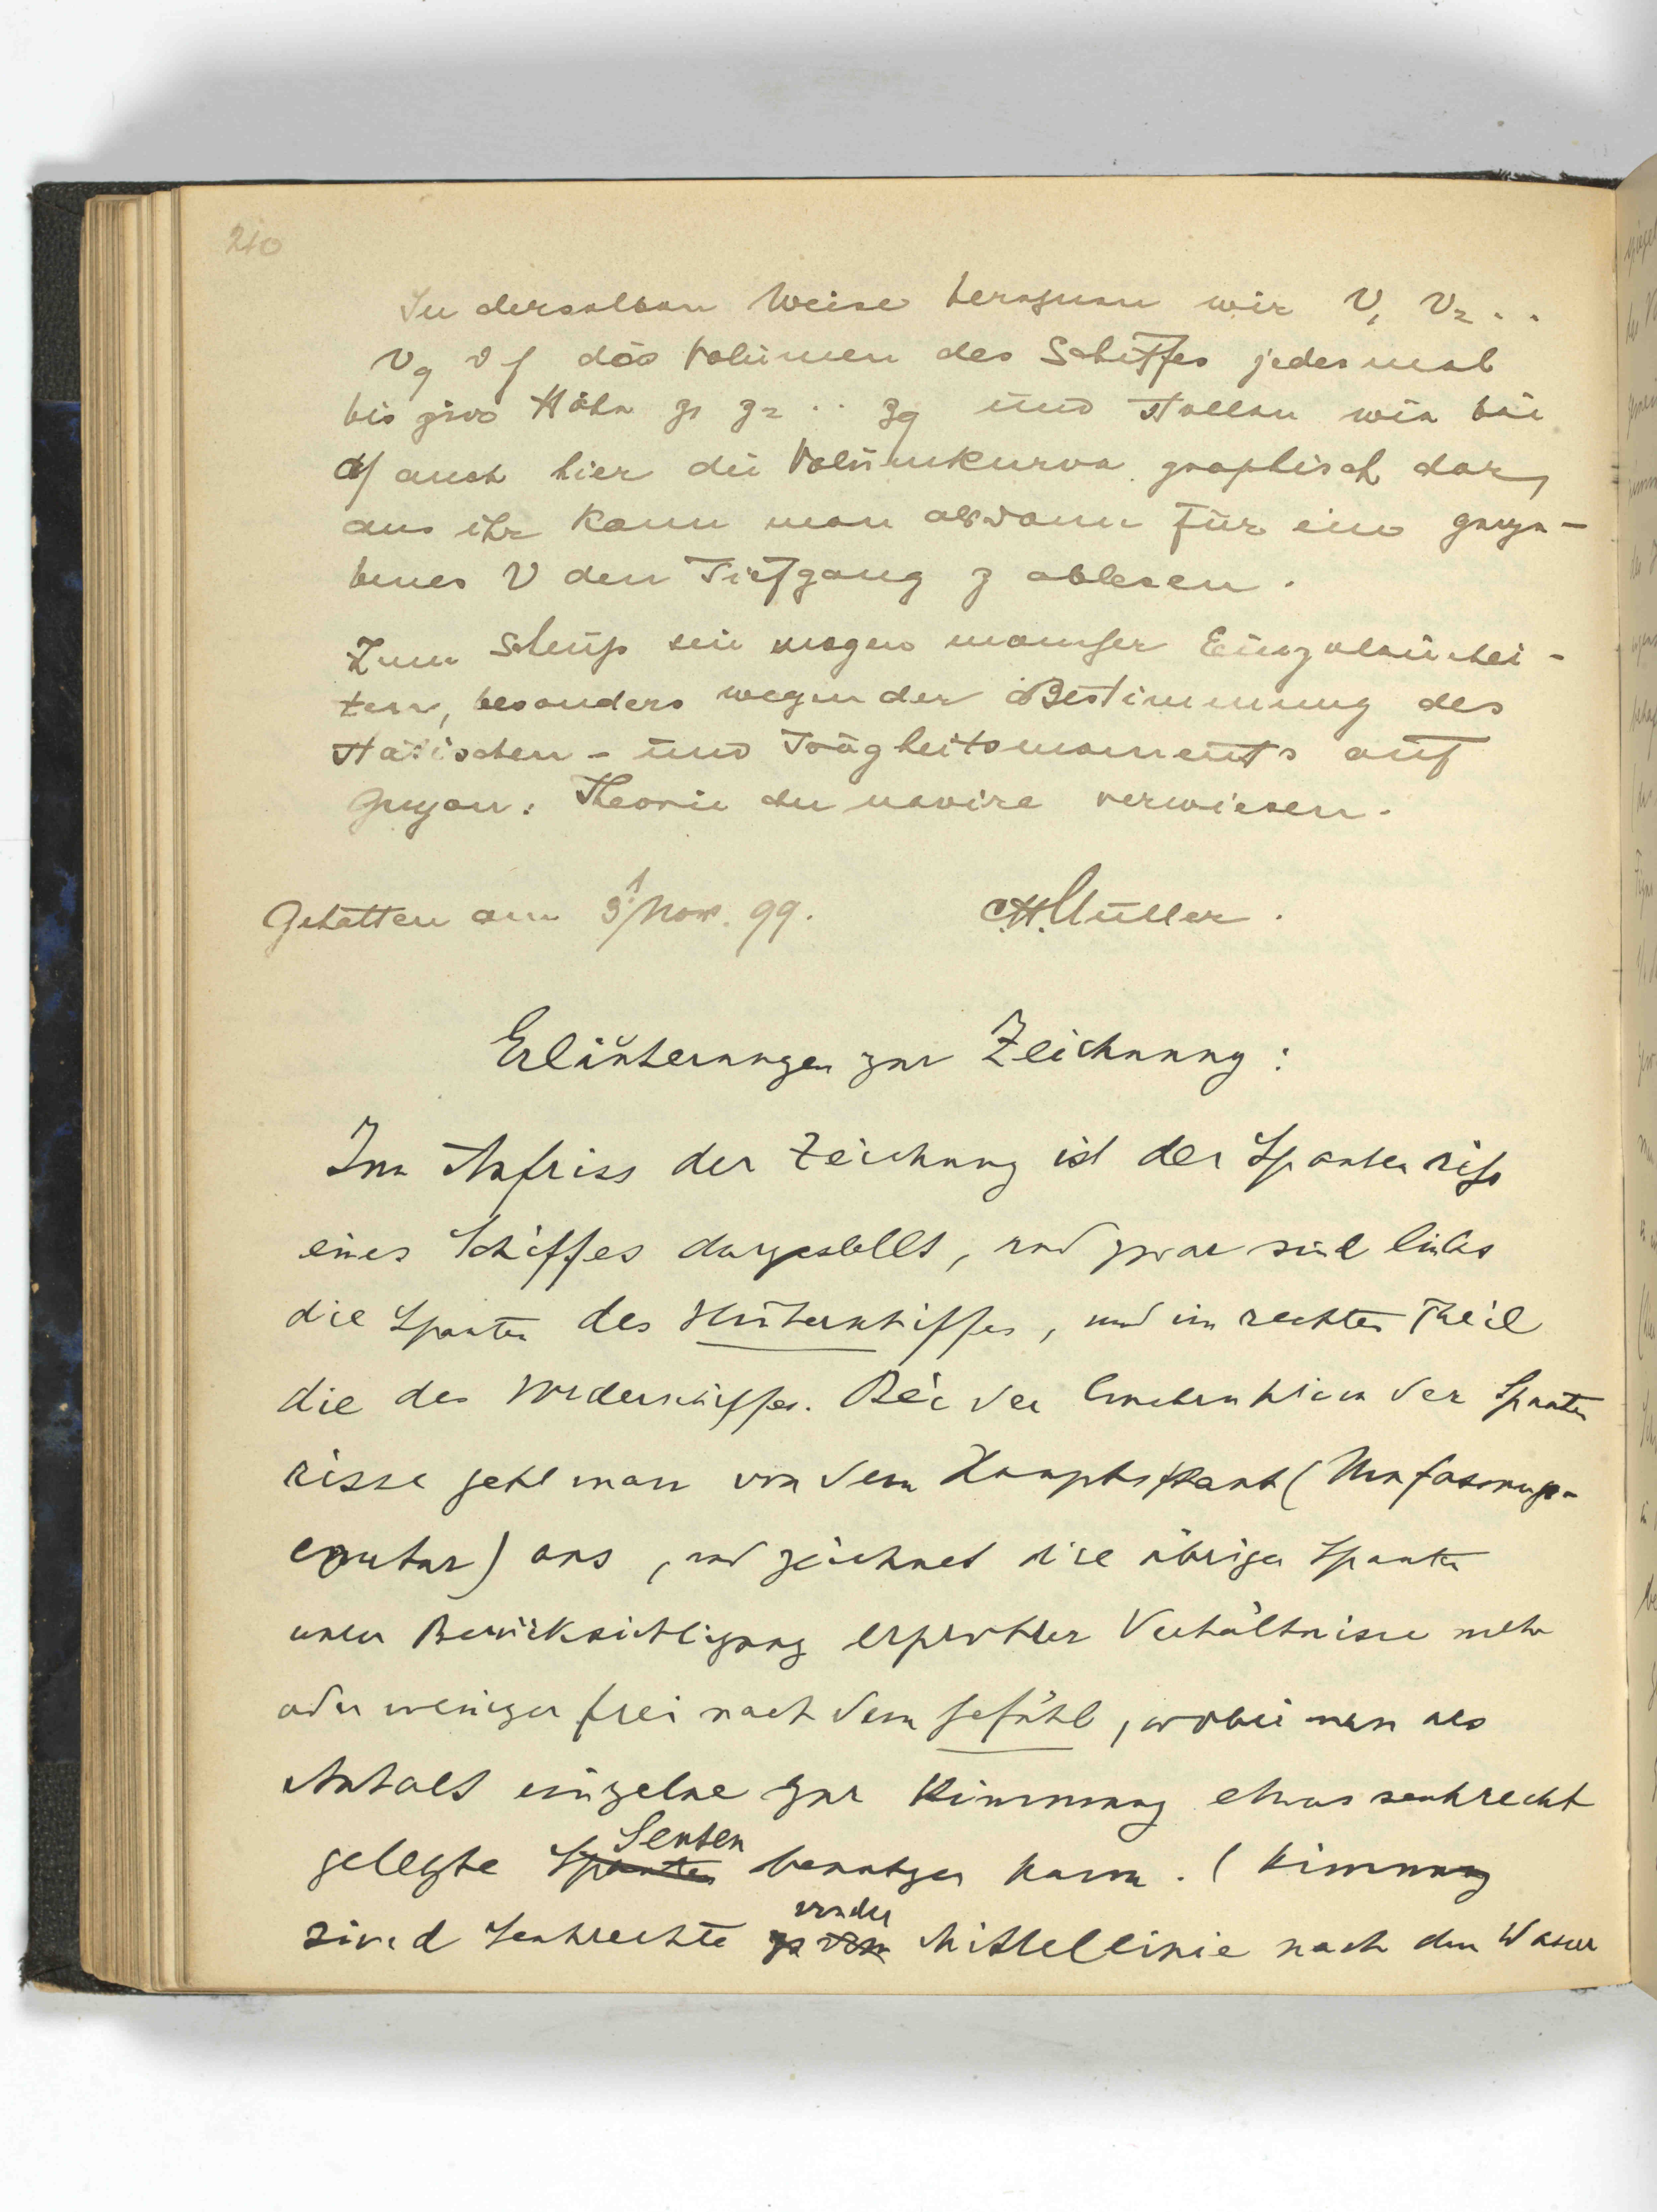 210
In derselben Weise berechnen wir V₁ V₂ . .
V₉ d. f. das Volumen des Schiffes jedesmal
bis zur Höhe z₁ z₂ . . z₉ und stellen wie bei
auch hier die Volumkurve graphisch dar,
aus ihr kann man alsdann für ein gege-
benes V den Tiefgang z ablesen.
Zum Schluß sei wegen mancher Einzelnhei-
ten, besonders wegen der Bestimmung des
statischen- und Trägheitsmoments auf
Guyou: Theorie du navire verwiesen.
Gehalten am Nov. 99. C.H. Müller.
Erläuterungen zur Zeichnung:
Im Aufriss der Zeichnung ist der Spantenriß
eines Schiffes dargestellt, und zwar sind links
die Spanten des Hinterschiffes, und im rechten Theil
die des Vorderschiffes. Bei der Construktion der Spanten
risse geht man von dem Hauptspant (Umfassungs-
contur) aus, und zeichnet die übrigen Spanten
unter Berücksichtigung erprobter Verhältnisse mehr
oder weniger frei nach dem Gefühl, wobei man als
Anhalt einzelne zur Kimmung etwas senkrecht
gelegte Spanten Senten benutzen kann. (Kimmung
sind Senkrechte von der Mittellinie nach dem Wasser